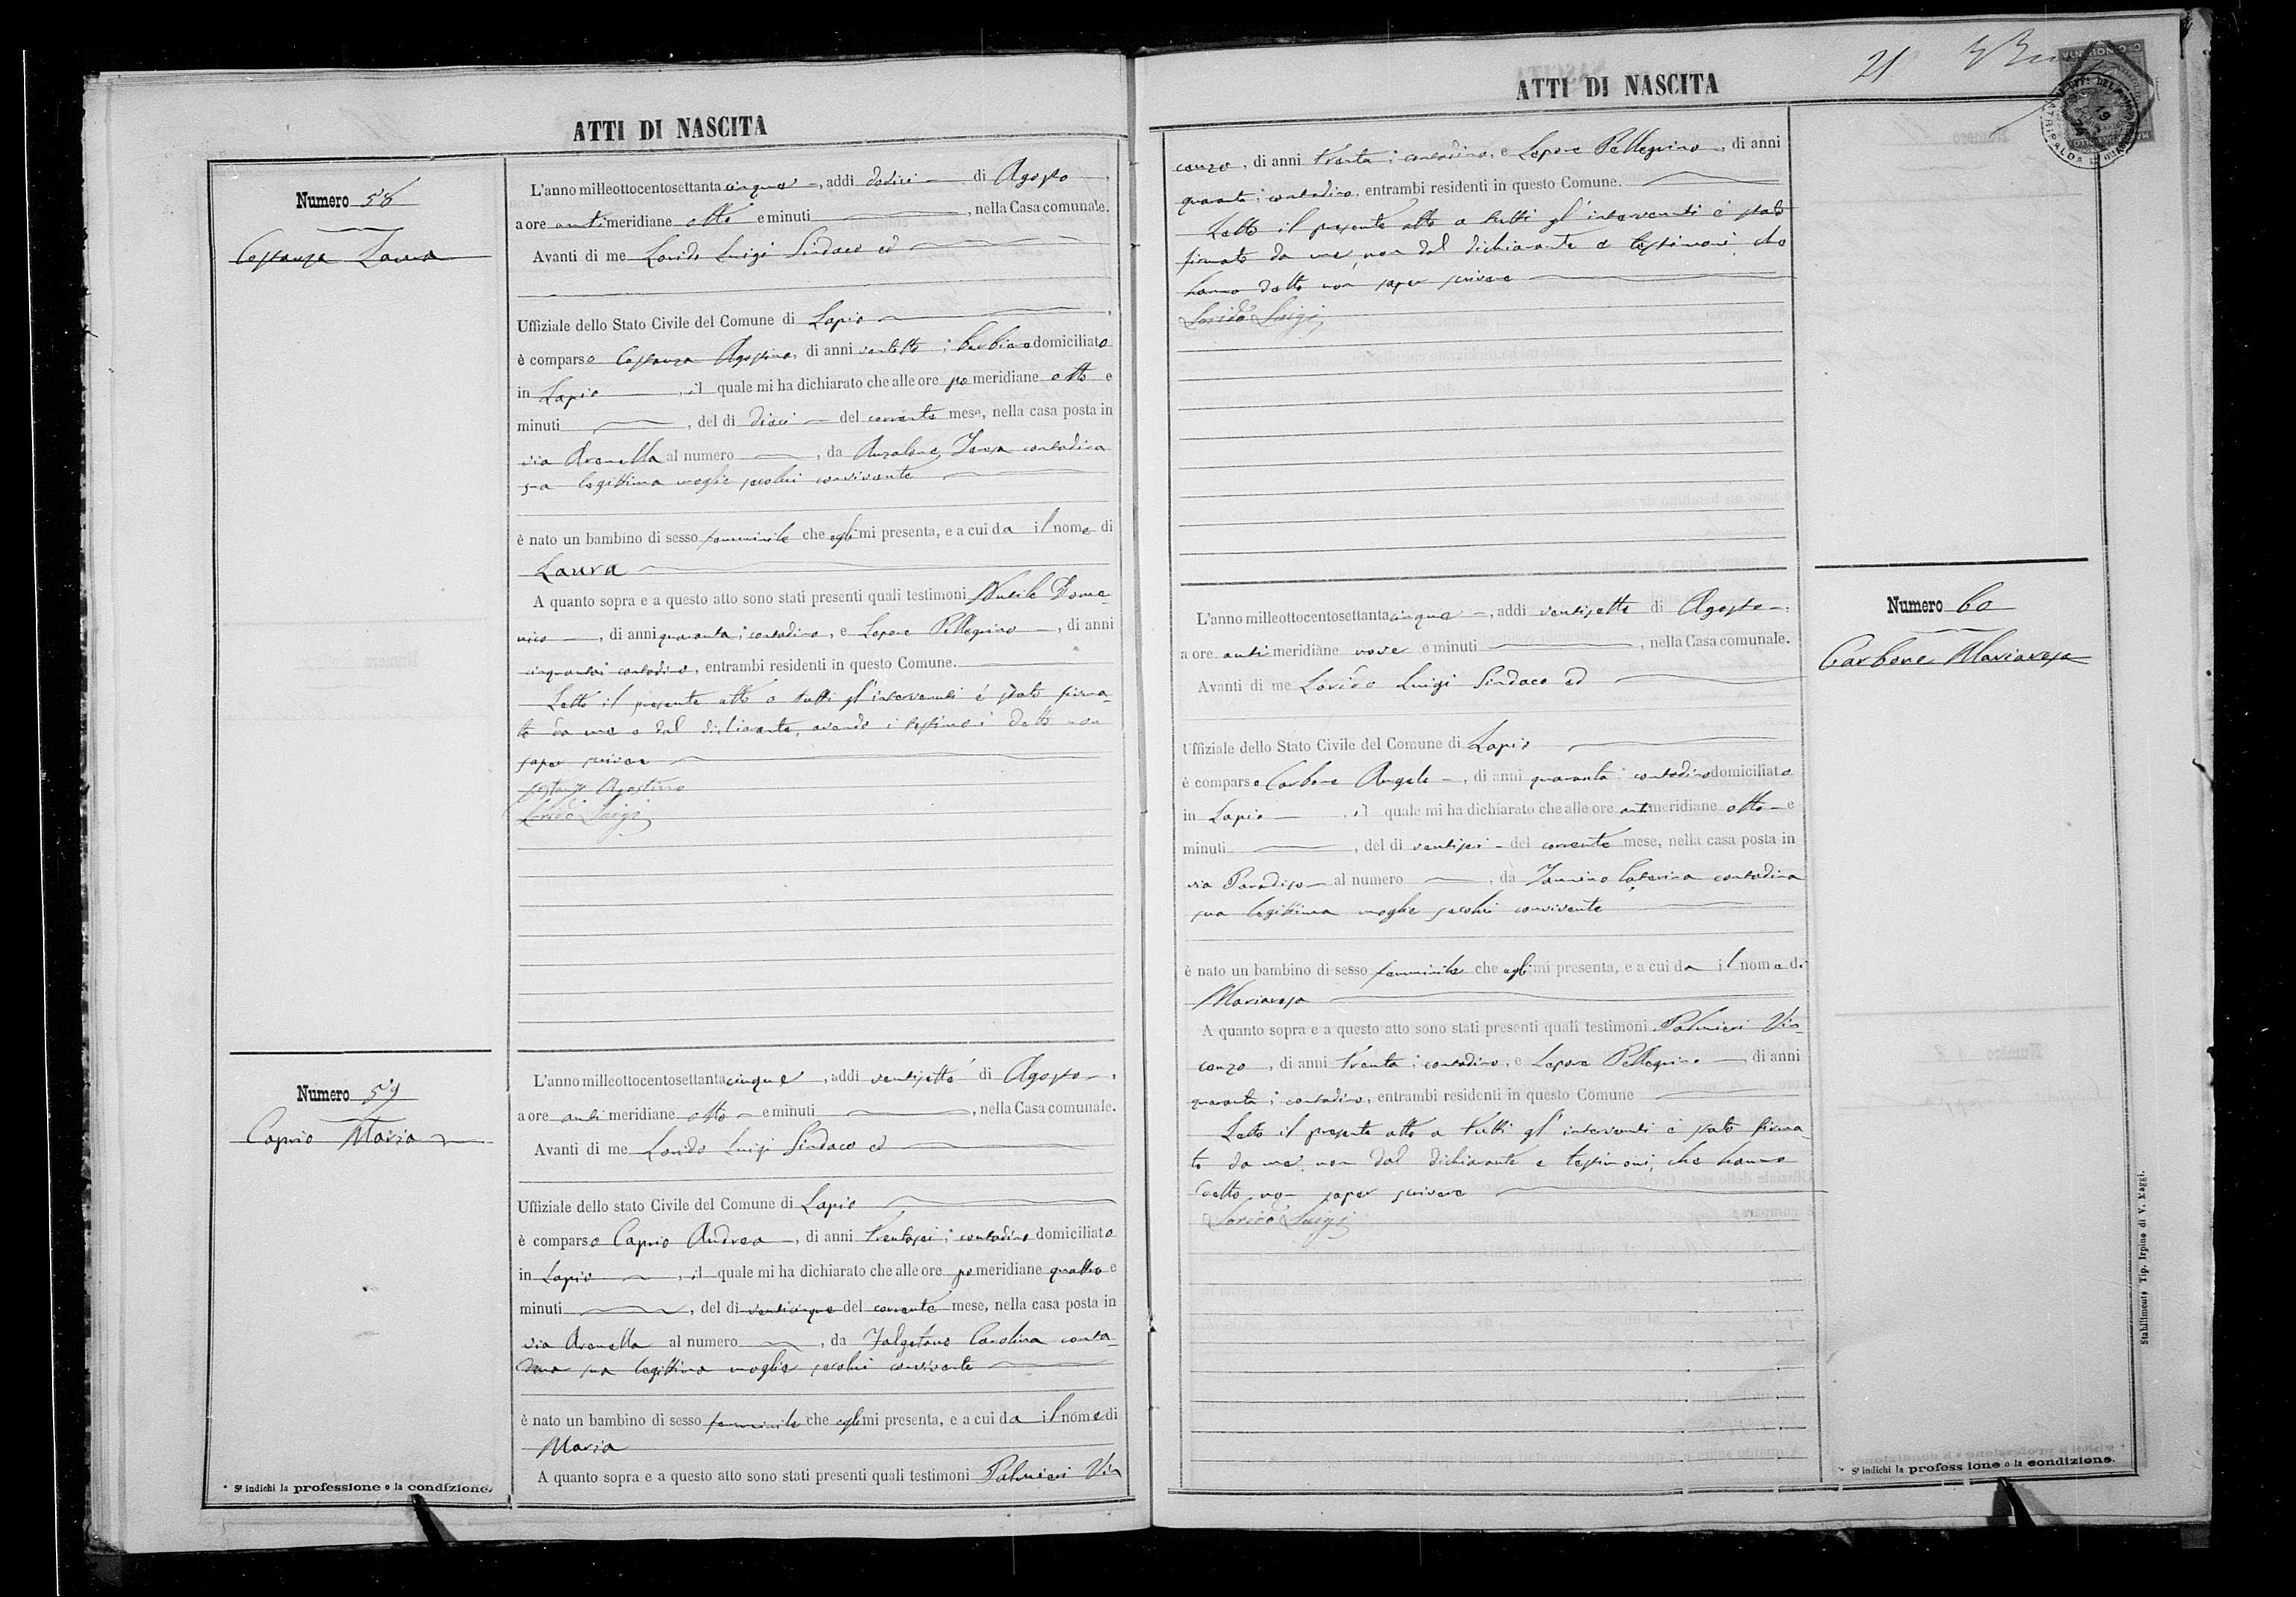 ATTI DI NASCITA
Numero 58
Costanza Laura
L'anno milleottocentosettantacinque, addì dodici di Agosto,
a ore antimeridiane otto e minuti , nella Casa comunale.
Avanti di me Lorido Luigi Sindaco ed
Uffiziale dello Stato Civile del Comune di Lapio
è comparso Costanza Agostino, di anni ventotto; barbiere domiciliato
in Lapio , il quale mi ha dichiarato che alle ore pomeridiane otto e
minuti , del dì dieci del corrente mese, nella casa posta in
via Arenella al numero , da Anzalone contadina
sua legittima moglie secolui convivente
è nato un bambino di sesso femminile che egli mi presenta, e a cui da il nome di
Laura
A quanto sopra e a questo atto sono stati presenti quali testimoni Dome-
nico , di anni quaranta; contadino, e Lepore Pellegrino , di anni
cinquanta; contadino, entrambi residenti in questo Comune.
Letto il presente atto a tutti gl'intervenuti è stato firma-
to da me e dal dichiarante, avendo i testimoni detto non
saper scrivere
Costanza Agostino
Lorido Luigi
Numero 59
Caprio Maria
L'anno milleottocentosettantacinque, addì ventisette di Agosto,
a ore antimeridiane otto e minuti , nella Casa comunale.
Avanti di me Lorido Luigi Sindaco ed
Uffiziale dello stato Civile del Comune di Lapio
è comparso Caprio Andrea, di anni trentasei; contadino domiciliato
in Lapio , il quale mi ha dichiarato che alle ore pomeridiane quattro e
minuti , del dì venticinque del corrente mese, nella casa posta in
via Arenella al numero , da Falgetano Carolina conta-
dina sua legittima moglie secolui convivente
è nato un bambino di sesso femminile che egli mi presenta, e a cui da il nome di
Maria
A quanto sopra e a questo atto sono stati presenti quali testimoni Palmieri Vin
* Si indichi la professione o la condizione.
21
ATTI DI NASCITA
cenzo, di anni trenta; contadino, e Lepore Pellegrino, di anni
quaranta; contadino, entrambi residenti in questo Comune.
Letto il presente atto a tutti gl'intervenuti è stato
firmato da me, non dal dichiarante e testimoni, che
hanno detto non saper scrivere
Lorido Luigi
Numero 60
Carbone Mariarosa
L'anno milleottocentosettantacinque, addì ventisette di Agosto,
a ore antimeridiane nove e minuti , nella Casa comunale.
Avanti di me Lorido Luigi Sindaco ed
Uffiziale dello Stato Civile del Comune di Lapio
è comparso Carbone Angelo, di anni quaranta; contadino domiciliato
in Lapio , il quale mi ha dichiarato che alle ore antimeridiane otto e
minuti , del dì ventisei del corrente mese, nella casa posta in
via Paradiso al numero , da Iannino Caterina contadina
sua legittima moglie secolui convivente
è nato un bambino di sesso femminile che egli mi presenta, e a cui da il nome di
Mariarosa
A quanto sopra e a questo atto sono stati presenti quali testimoni Palmieri Vin-
cenzo, di anni trenta; contadino, e Lepore Pellegrino , di anni
quaranta; contadino, entrambi residenti in questo Comune
Letto il presente atto a tutti gl'intervenuti è stato firma-
to da me, non dal dichiarante e testimoni, che hanno
detto non saper scrivere
Lorido Luigi
* Si indichi la professione o la condizione.
Stabilimento Tip. Irpino di V. Maggi.